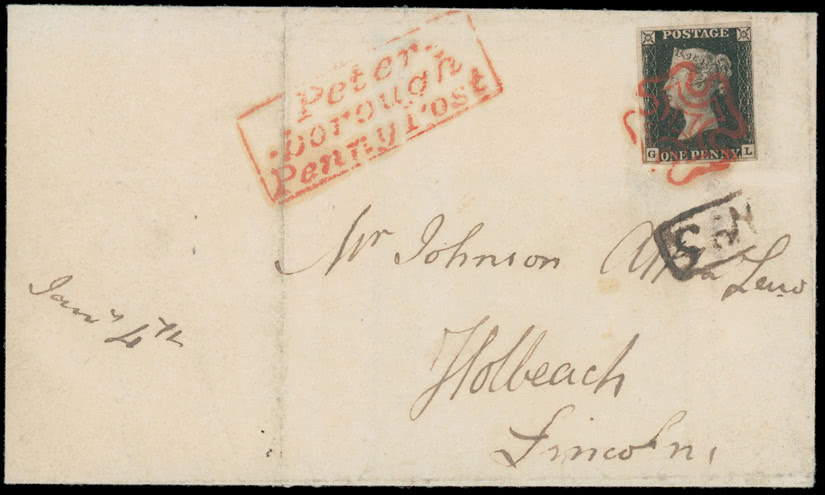 Peter-
-borough
Penny Post
POSTAGE
G ONE PENNY L
No 5
Mr Johnson
Holbeach
Lincoln,
Jany 4th